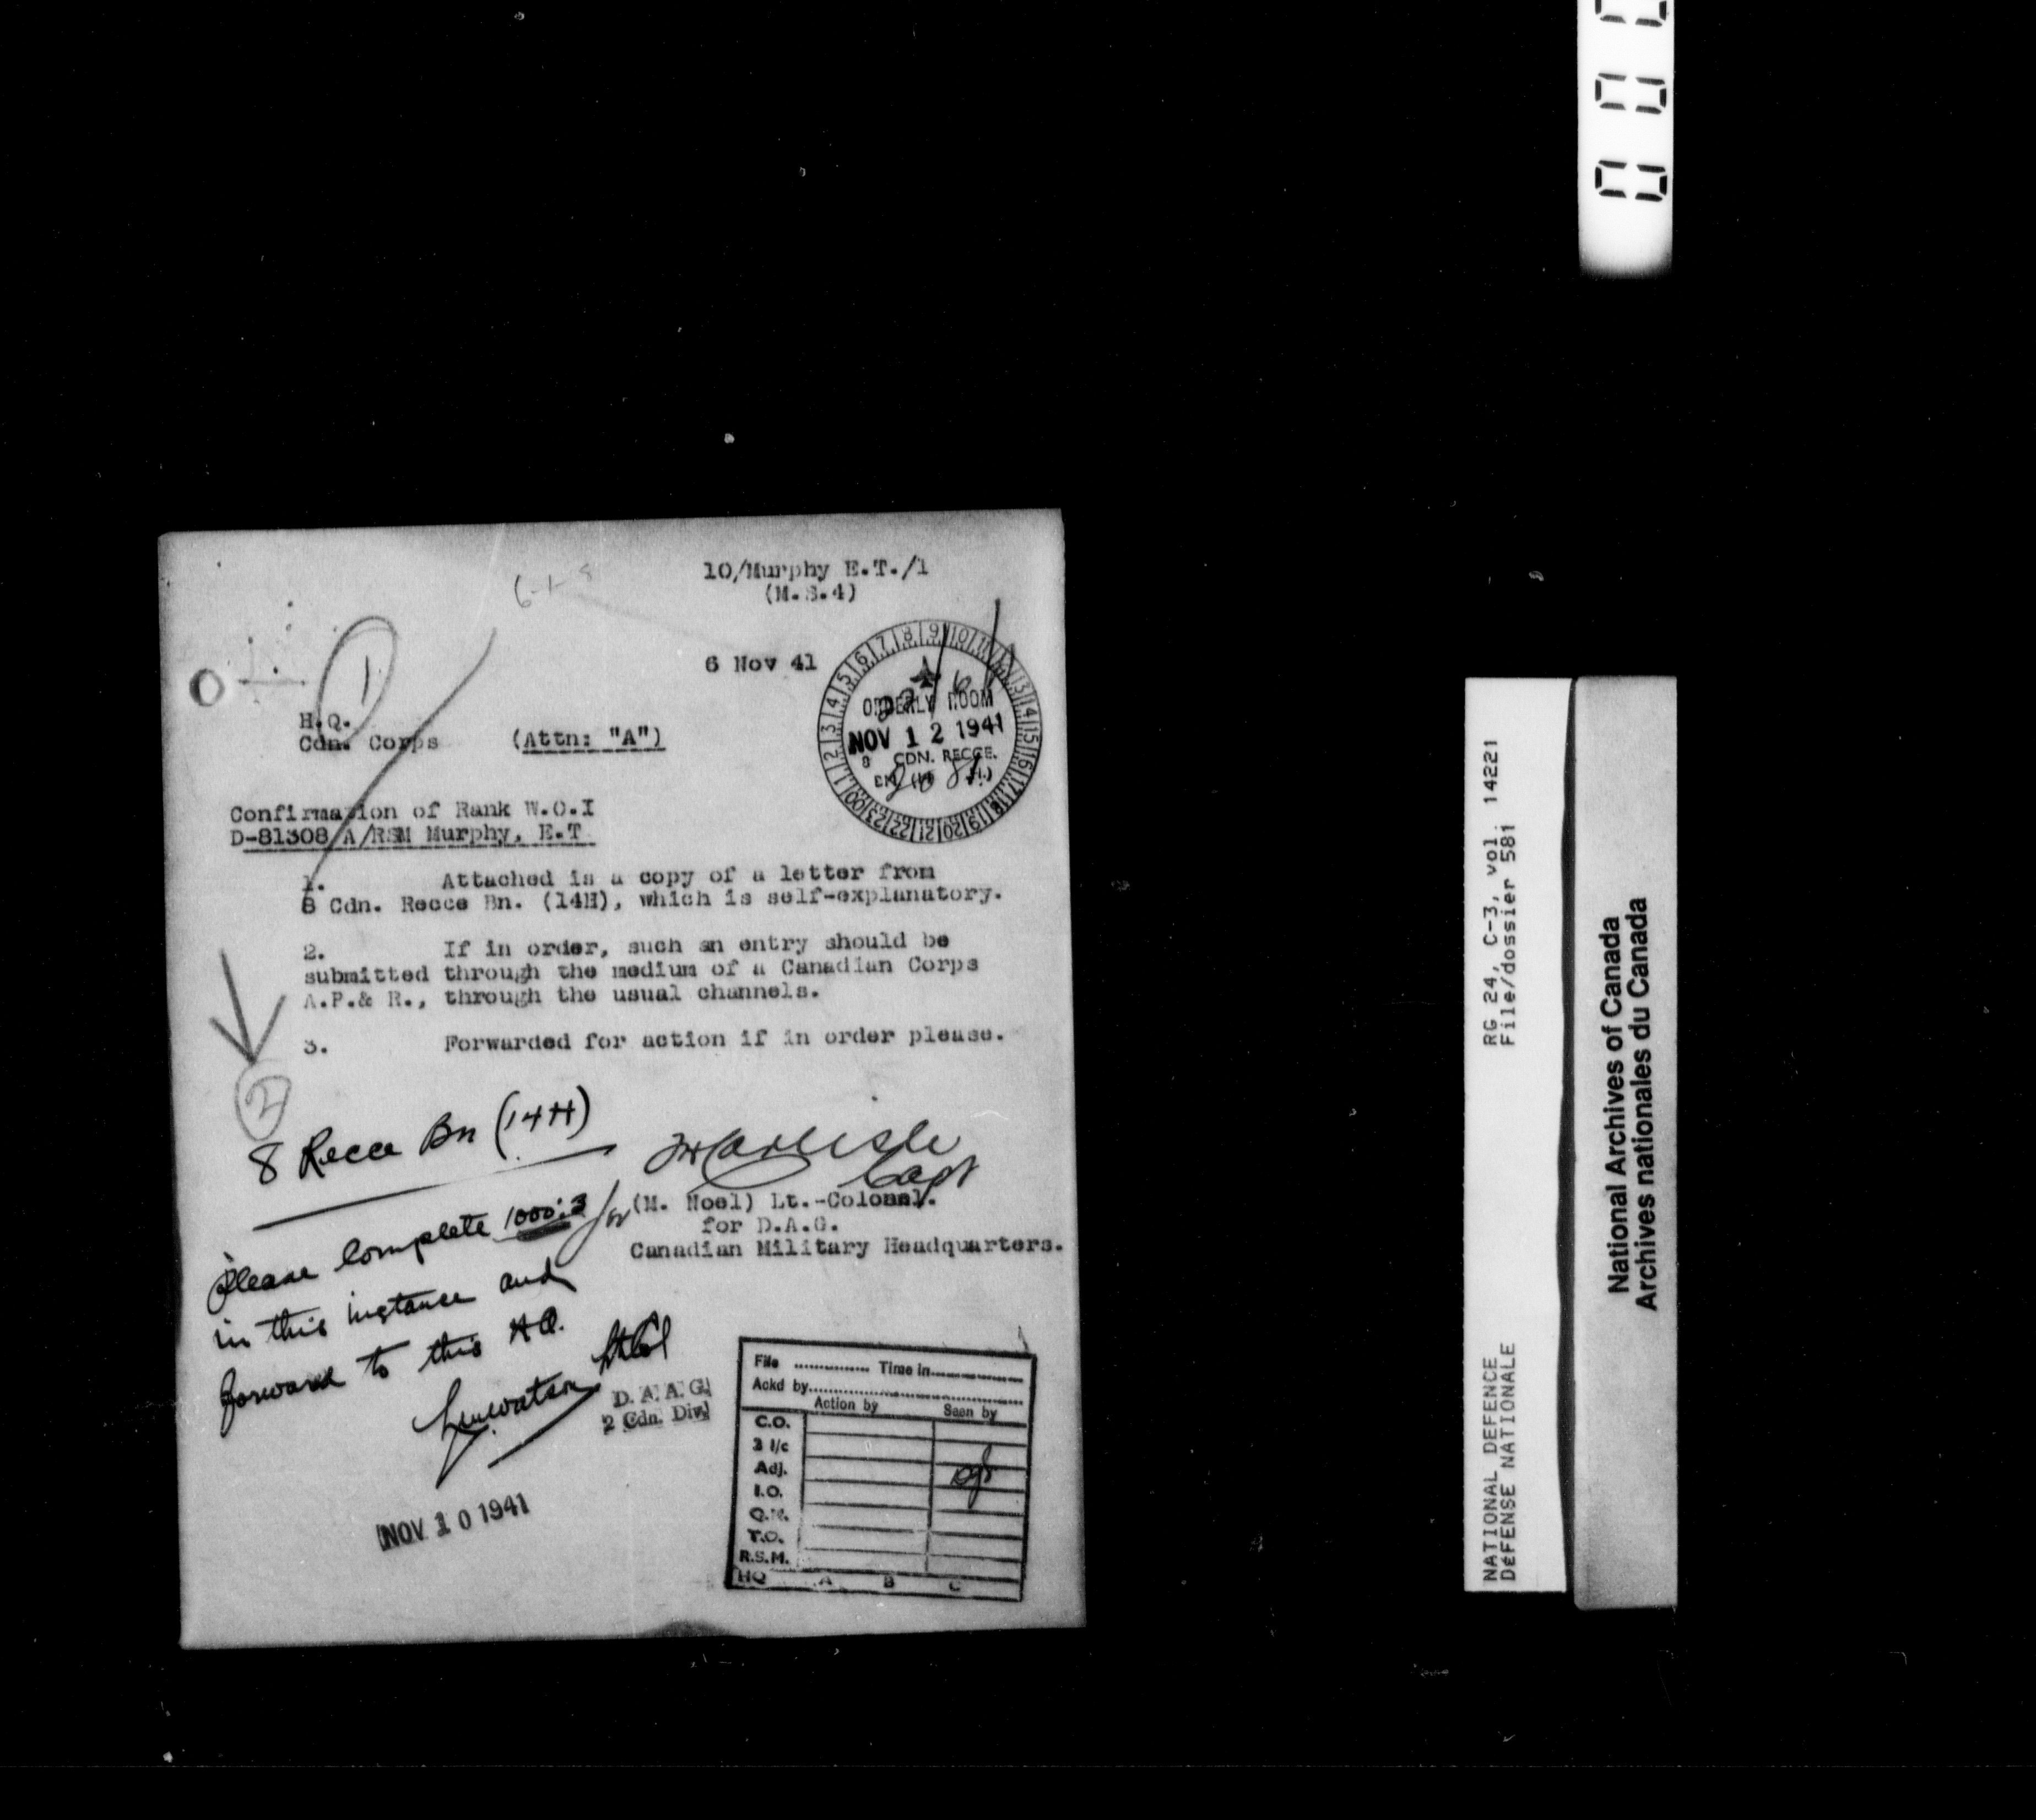 10/Murphy E.T./1
(M.S.4)
6 Nov 41
1
H.Q.
Cdn. Corps (Attn: "A")
ORDERLY ROOM
NOV 12 1941
8 CDN. RECCE.
BN. (14 H.)
Confirmation of Rank W.O.I
D-81308 A/RSM Murphy, E.T
1. Attached is a copy of a letter from
8 Cdn. Recce Bn. (14H), which is self-explanatory.
2. If in order, such an entry should be
submitted through the medium of a Canadian Corps
A.P.& R., through the usual channels.
3. Forwarded for action if in order please.
2
8 Recce Bn (14H)
Carlisle
Capt
for (M. Noel) Lt.-Colonel.
for D.A.G.
Canadian Military Headquarters.
Please complete 1000:3
in this instance and
forward to this HQ.
D. A. A. G.
2 Cdn. Div.
NOV 10 1941
File .............. Time in....................
Ackd by..................................................
Action by Seen by
C.O.
2 i/c
Adj.
I.O.
Q.M.
T.O.
R.S.M.
HQ A B C
RG 24, C-3, vol. 14221
File/dossier 581
NATIONAL DEFENCE
DéFENSE NATIONALE
National Archives of Canada
Archives nationales du Canada